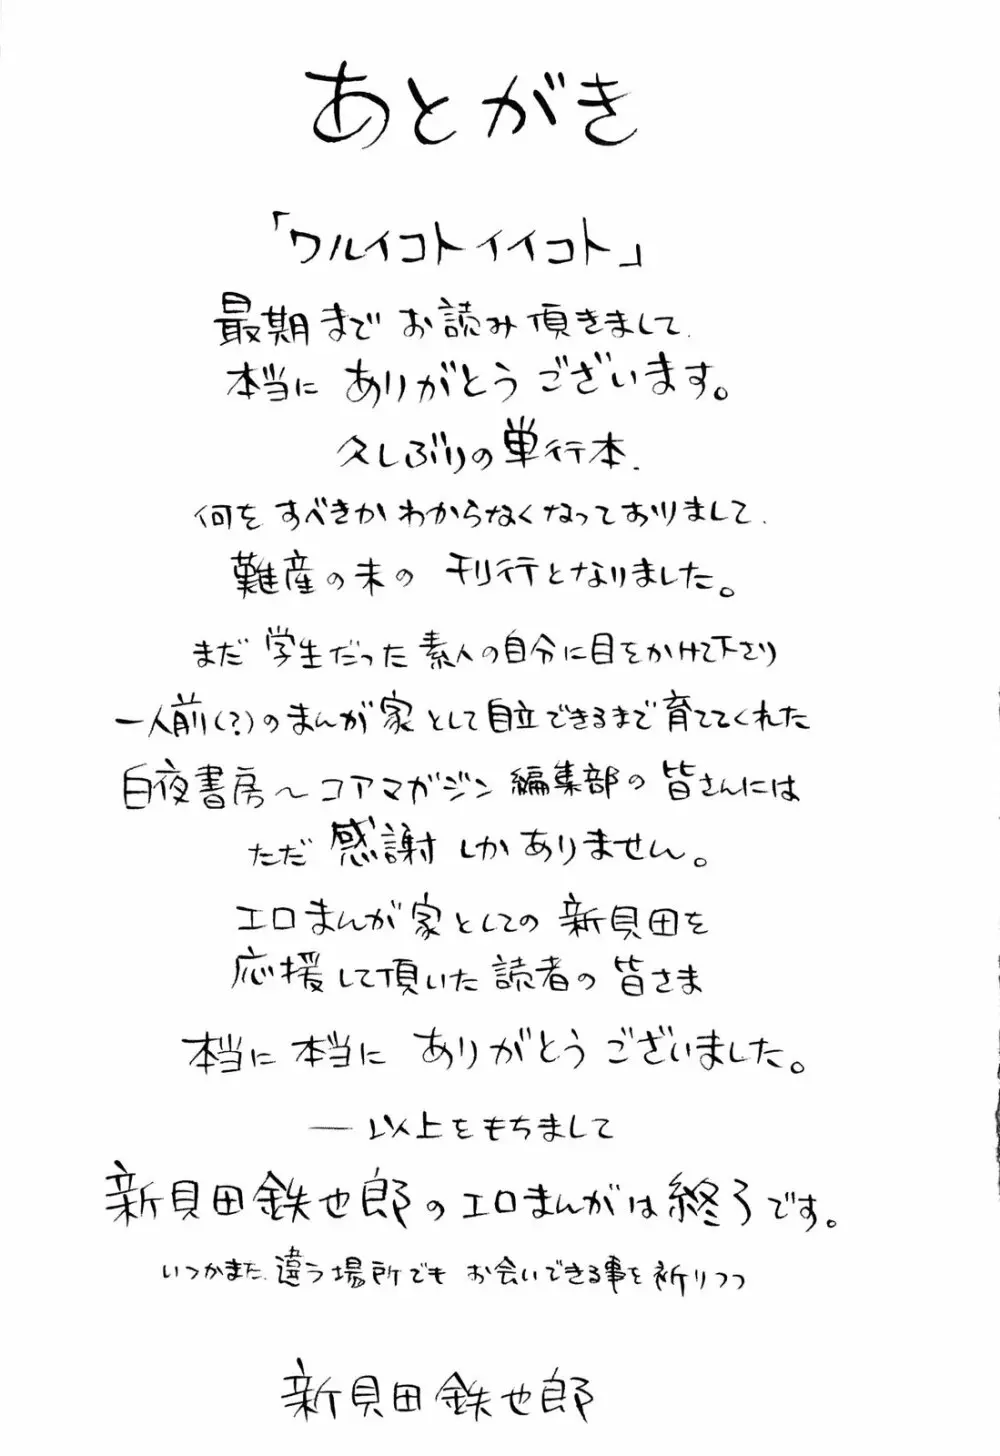 あとがき
「ワルイコトイイコト」
最期まで お読み頂きまして、
本当に ありがとうございます。
久しぶりの単行本、
何を すべきか わからなくなっておりまして、
難産の末の 刊行となりました。
まだ 学生だった 素人の自分に目をかけて下さり
一人前(?)のまんが家として自立できるまで育ててくれた
白夜書房〜コアマガジン編集部の皆さんには
ただ 感謝 しか ありません。
エロまんが家としての 新貝田を
応援して頂いた 読者の皆さま
本当に 本当に ありがとうございました。
― 以上をもちまして
新貝田鉄也郎のエロまんがは終了です。
いつかまた、違う場所でも お会いできる事を祈りつつ
新貝田鉄也郎